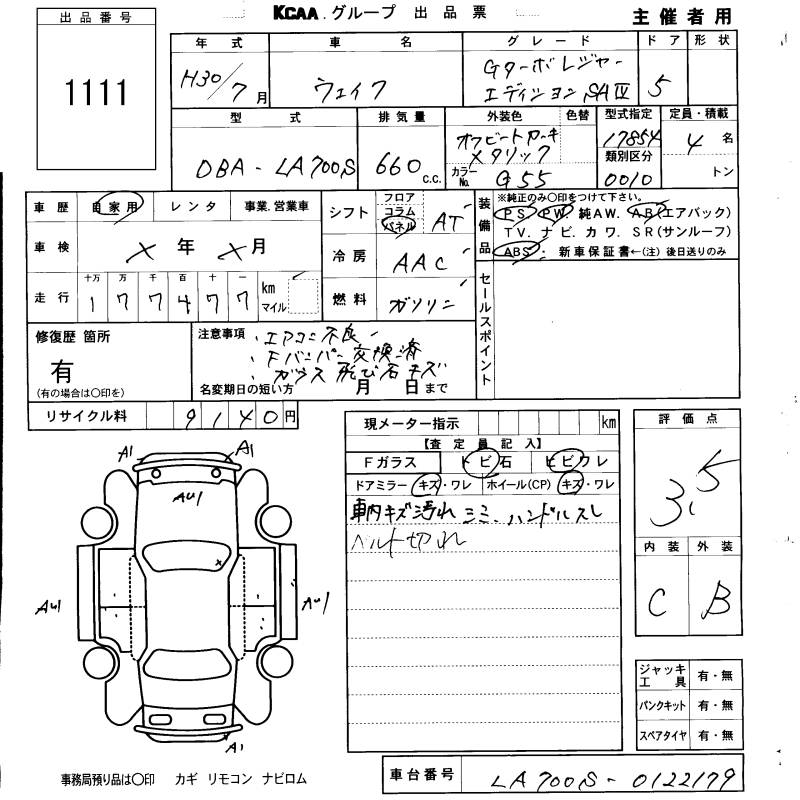 KCAA グループ 出品票
主催者用
出品番号
1111
年式 車名 グレード ドア 形状
H30/7月 ウェイク Gターボレジャーエディション SAⅢ 5
型式 排気量 外装色 色替 型式指定 定員・積載
DBA-LA700S 660 c.c. オフビートカーキメタリック 17854 4 名
カラーNo. G55 類別区分 0010 トン
車歴 自家用 レンタ 事業.営業車
シフト フロア コラム パネル AT
装備品 ※純正のみ○印をつけて下さい。
PS PW 純AW. AB(エアバック)
TV. ナビ. カワ. SR(サンルーフ)
ABS 新車保証書←(注) 後日送りのみ
車検 x 年 x 月
冷房 AAC
走行 十万 万 千 百 十 一
1 7 7 4 7 7 km マイル
燃料 ガソリン
セールスポイント
修復歴 箇所
有
(有の場合は○印を)
注意事項 ・エアコン不良
・Fバンパー交換済
・ガラス飛び石キズ
名変期日の短い方 月 日 まで
リサイクル料 9140円
現メーター指示 km
【査定員記入】
Fガラス トビ石 ヒビワレ
ドアミラー キズ・ワレ ホイール(CP) キズ・ワレ
車内キズ汚れ シミ、ハンドルスレ
ベルト切れ
評価点
3.5
内装 外装
C B
A1 A1
AU1
AU1 AU1
x
A1
ジャッキ工具 有・無
パンクキット 有・無
スペアタイヤ 有・無
事務局預り品は○印 カギ リモコン ナビロム
車台番号 LA700S-0122179